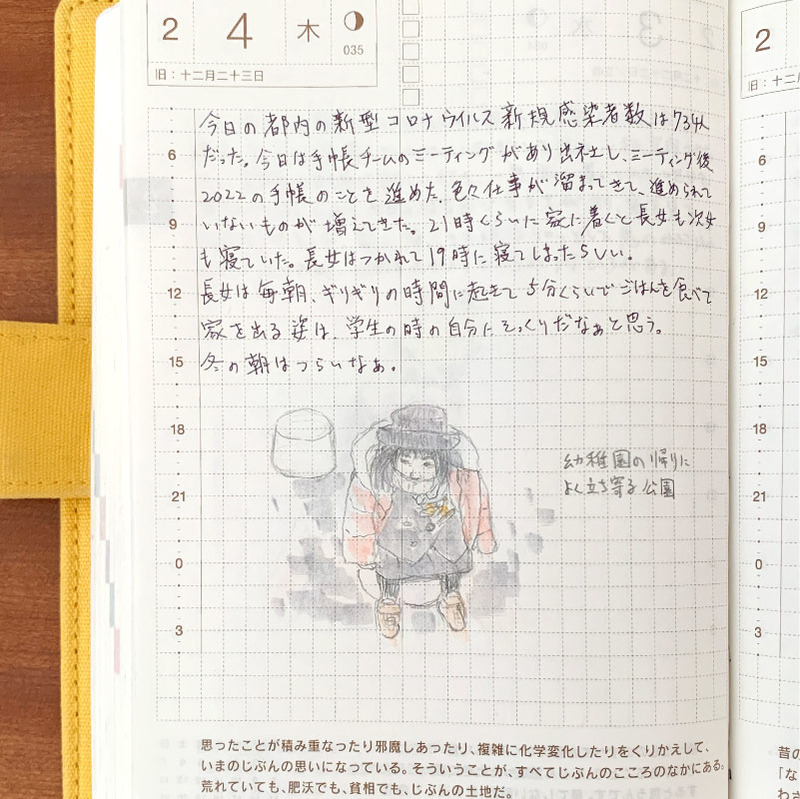 2 4 木
035
旧：十二月二十三日
今日の都内の新型コロナウイルス新規感染者数は734人
だった。今日は手帳チームのミーティングがあり出社し、ミーティング後
2022の手帳のことを進めた。色々仕事が溜まってきて、進められて
いないものが増えてきた。21時くらいに家に着くと長女も次女
も寝ていた。長女はつかれて19時に寝てしまったらしい。
長女は毎朝、ギリギリの時間に起きて5分くらいでごはんを食べて
家を出る姿は、学生の時の自分にそっくりだなぁと思う。
冬の朝はつらいなぁ。
6
9
12
15
18
21
0
3
幼稚園の帰りに
よく立ち寄る公園
思ったことが積み重なったり邪魔しあったり、複雑に化学変化したりをくりかえして、
いまのじぶんの思いになっている。そういうことが、すべてじぶんのこころのなかにある。
荒れていても、肥沃でも、貧相でも、じぶんの土地だ。
2
旧：十二
6
9
12
15
18
21
0
3
昔の
「な